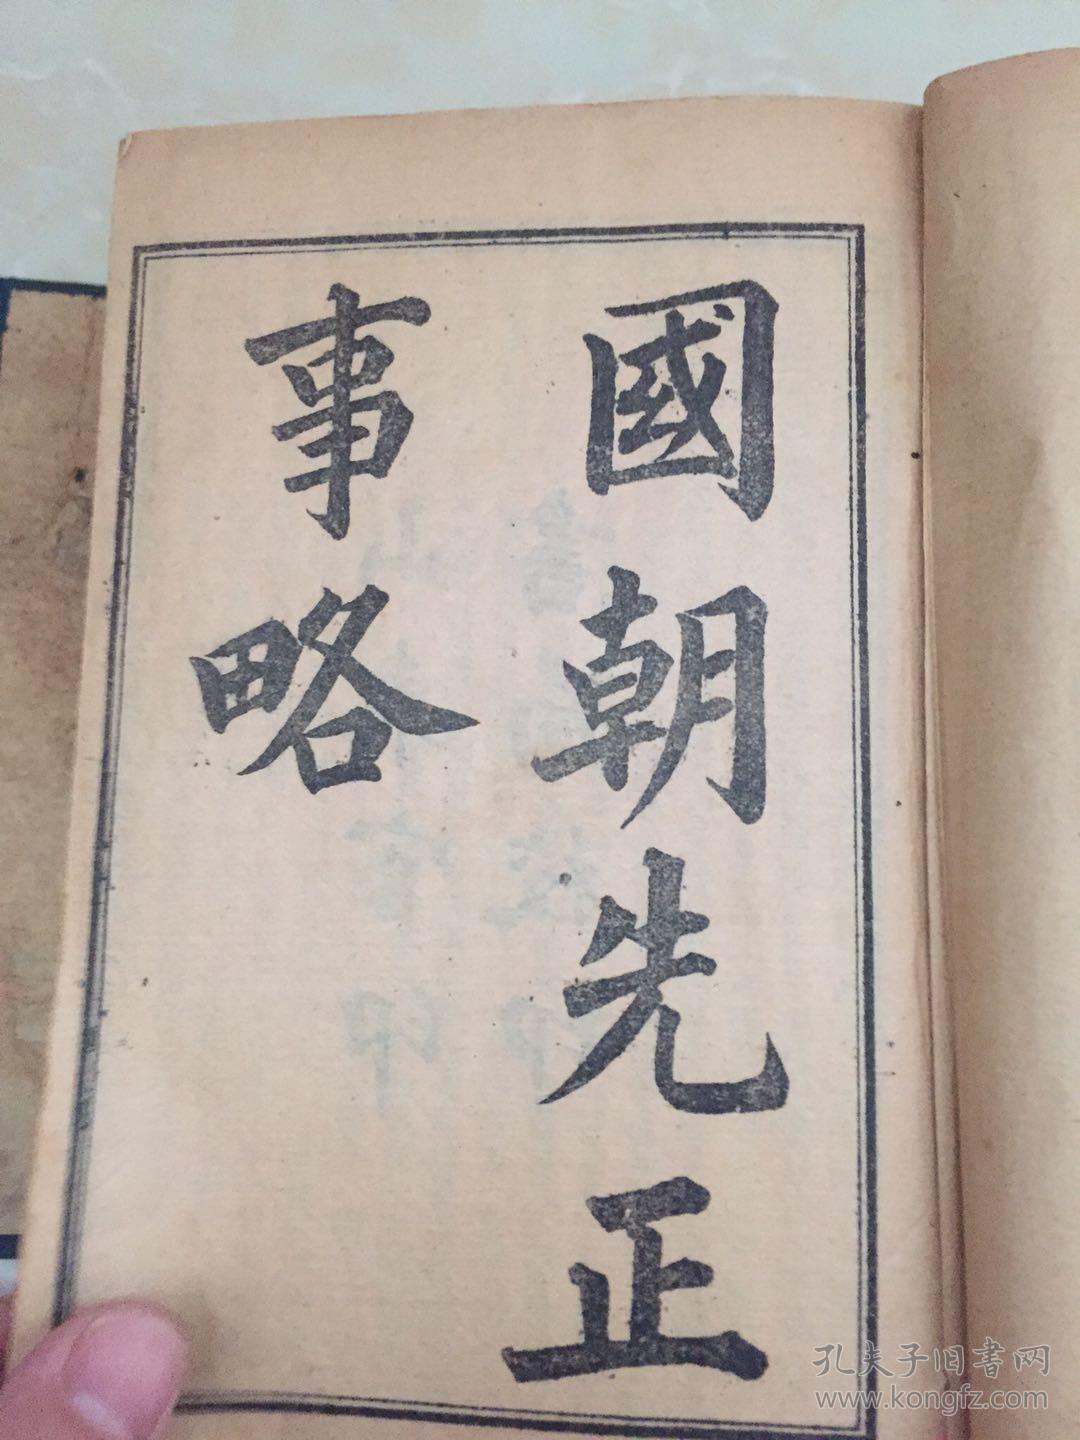 國朝先正
事略
孔夫子旧書网
www.kongfz.com